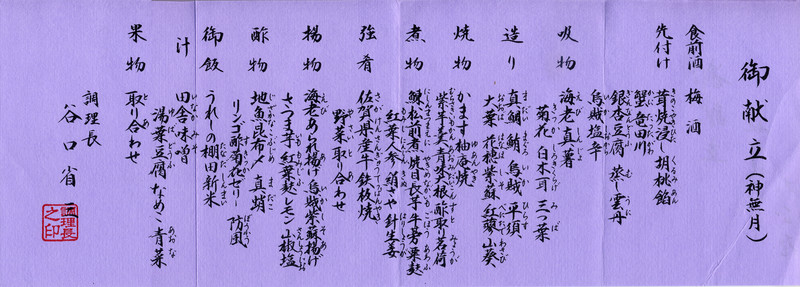 御献立（神無月）
食前酒 梅酒
先付け 茸焼浸し 胡桃餡
蟹竜田川
銀杏豆腐 蒸し雲丹
烏賊塩辛
吸物 海老真薯
菊花 白木耳 三つ葉
造り 真鯛 鮪 烏賊 平須
大葉 花桃 紫蘇 紅蓼 山葵
焼物 かます柚庵焼
紫芋羹 青味大根 酢取り茗荷
煮物 鰊松前煮 焼目長芋 牛蒡 粟麩
紅葉人参 絹さや 針生姜
強肴 佐賀県産牛 鉄板焼
野菜取り合わせ
揚物 海老あられ揚げ 烏賊紫蘇揚げ
さつま芋 紅葉麩 レモン 山椒塩
酢物 地魚昆布〆 真蛸
リンゴ酢菊花ゼリー 防風
御飯 うれしの棚田新米
汁 田舎味噌
湯葉豆腐 なめこ 青菜
果物 取り合わせ
調理長
谷口省
調理長之印